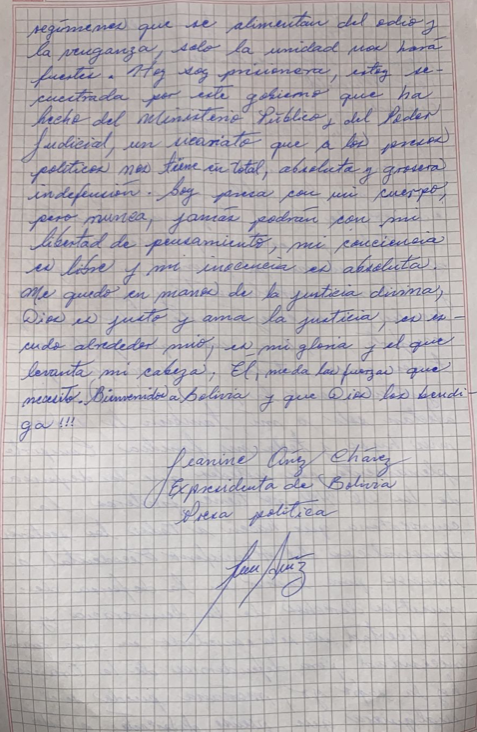 regímenes que se alimentan del odio y
la venganza, solo la unidad nos hará
fuertes. Hoy soy prisionera, estoy se-
cuestrada por este gobierno que ha
hecho del Ministerio Público y del Poder
Judicial, un sicariato que a los presos
políticos nos tiene en total, absoluta y grosera
indefensión. Soy presa con mi cuerpo,
pero nunca, jamás podrán con mi
libertad de pensamiento, mi conciencia
es libre y mi inocencia es absoluta.
Me quedo en manos de la justicia divina,
Dios es justo y ama la justicia, es es-
cudo alrededor mío, es mi gloria y el que
levanta mi cabeza. Él, me da las fuerzas que
necesito. Bienvenidos a Bolivia y que Dios los bendi-
ga !!!
Jeanine Añez Chávez
Expresidenta de Bolivia
Presa política